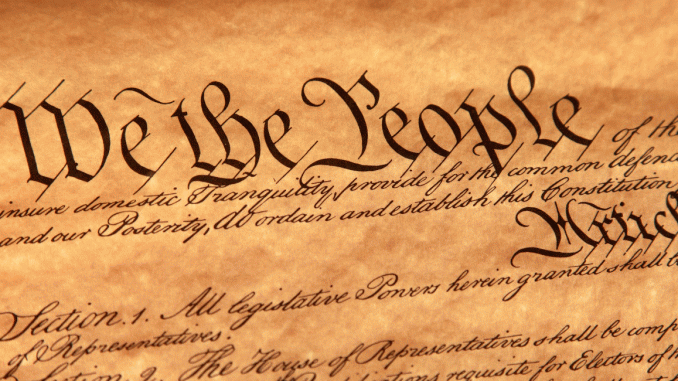 We the People of the
insure domestic Tranquility, provide for the common defenc
and our Posterity, do ordain and establish this Constitution
Article
Section. 1. All legislative Powers herein granted shall b
of Representatives.
Section. 2. The House of Representatives shall be comp
requisite for Electors of